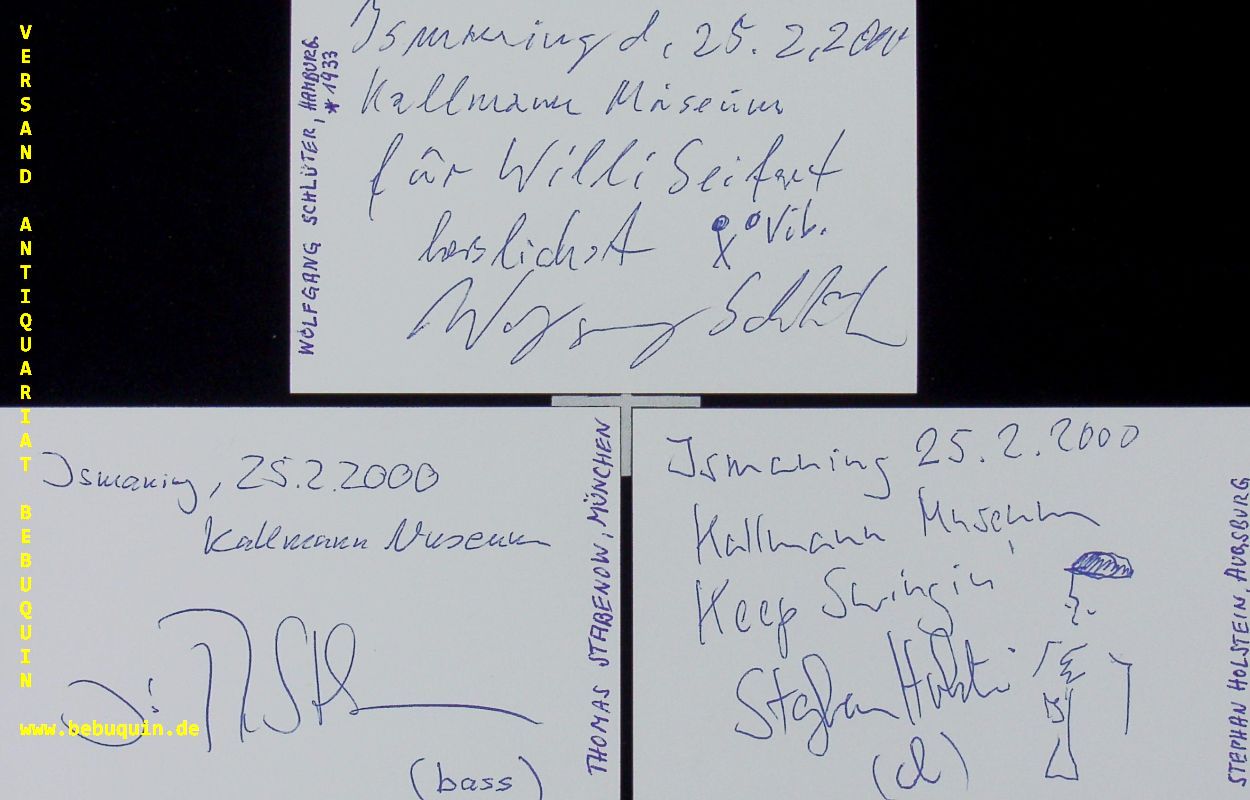 VERSAND ANTIQUARIAT BEBUQUIN
www.bebuquin.de
WOLFGANG SCHLÜTER, HAMBURG
* 1933
Ismaning d, 25. 2, 2000
Kallmann Museum
für Willi Seifart
herzlichst Vib.
Wolfgang Schlüter
Ismaning, 25.2.2000
Kallmann Museum
(bass)
THOMAS STABENOW, MÜNCHEN
Ismaning 25.2.2000
Kallmann Museum
Keep Swingin'
Stephan Holstein
(cl)
STEPHAN HOLSTEIN, AUGSBURG